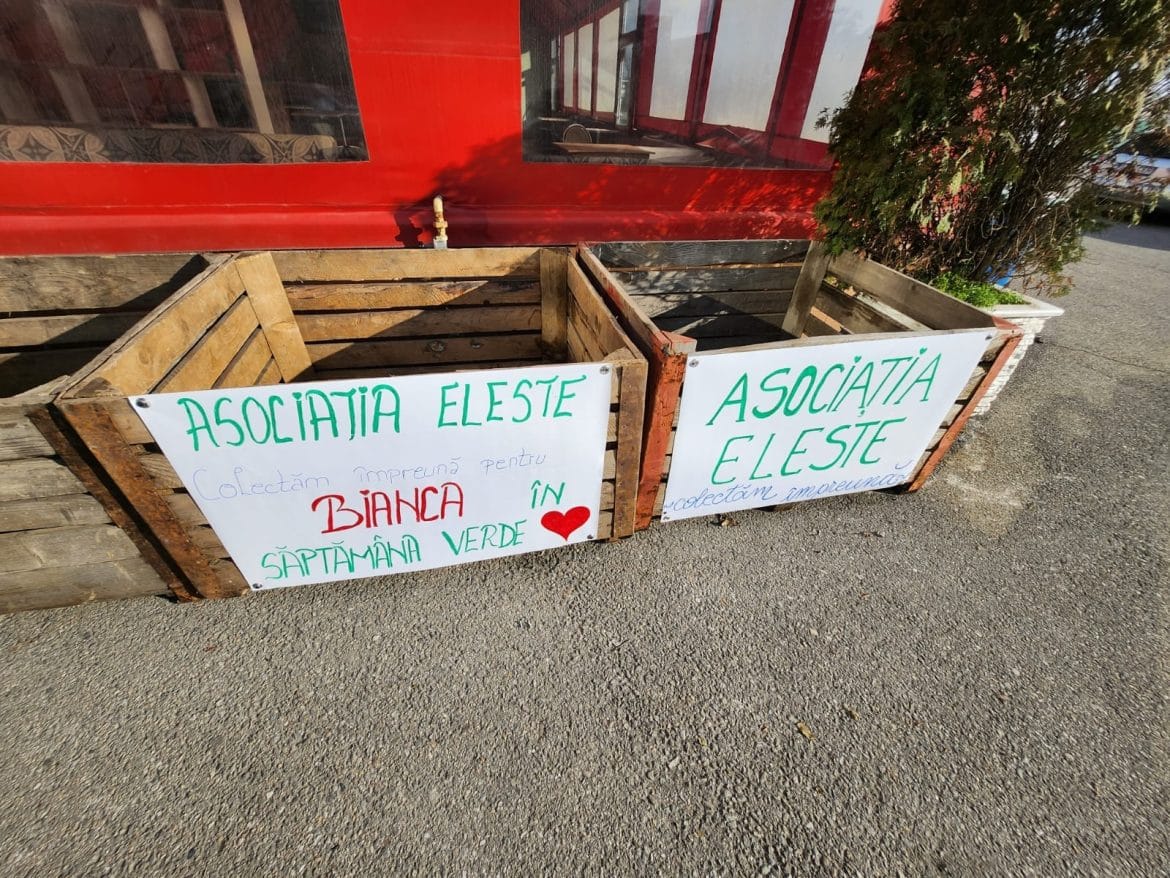 ASOCIAȚIA ELESTE
Colectăm împreună pentru
BIANCA ÎN
SĂPTĂMÂNA VERDE
ASOCIAȚIA
ELESTE
colectăm împreună